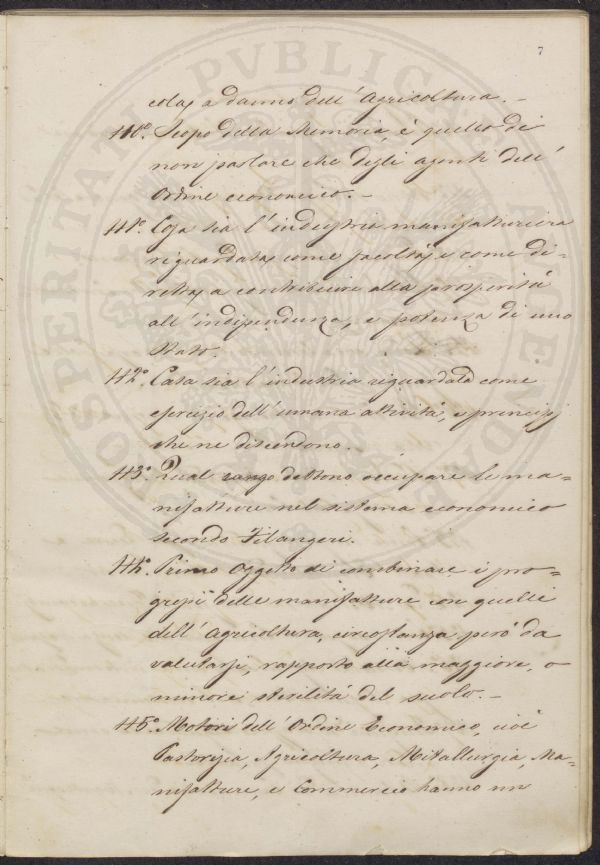 7
colas a danno dell' Agricoltura. –
40.° Scopo della Memoria, è quello di
non parlare che degli agenti dell'
Ordine economico. –
41.° Cosa sia l'industria manifatturiera
riguardata come facoltà, e come di-
retta a contribuire alla prosperità
all'indipendenza, e potenza di uno
Stato.
42.° Cosa sia l'industria riguardata come
esercizio dell'umana attività, e principj
che ne discendono. –
43.° Qual rango debbono occupare le ma-
nifatture nel sistema economico
secondo Filangeri.
44.° Primo Oggetto di combinare i pro-
gressi delle manifatture con quelli
dell'Agricoltura, circostanza però da
valutarsi, rapporto alla maggiore, o
minore sterilità del suolo. –
45.° Motori dell'Ordine Economico, cioè
Pastorizia, Agricoltura, Mitallurgia, Ma-
nifatture, e Commercio hanno un
PROSPERITATI PVBLICAE AVGENDAE